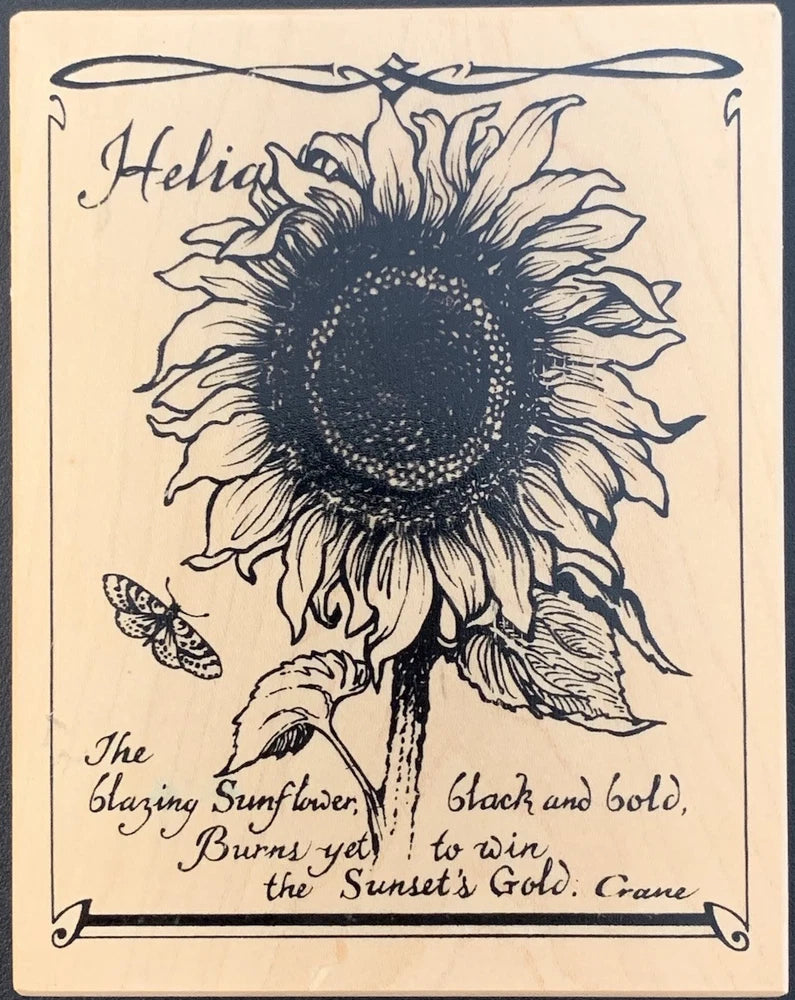 Helia
The
blazing Sunflower, black and bold,
Burns yet, to win
the Sunset's Gold. Crane